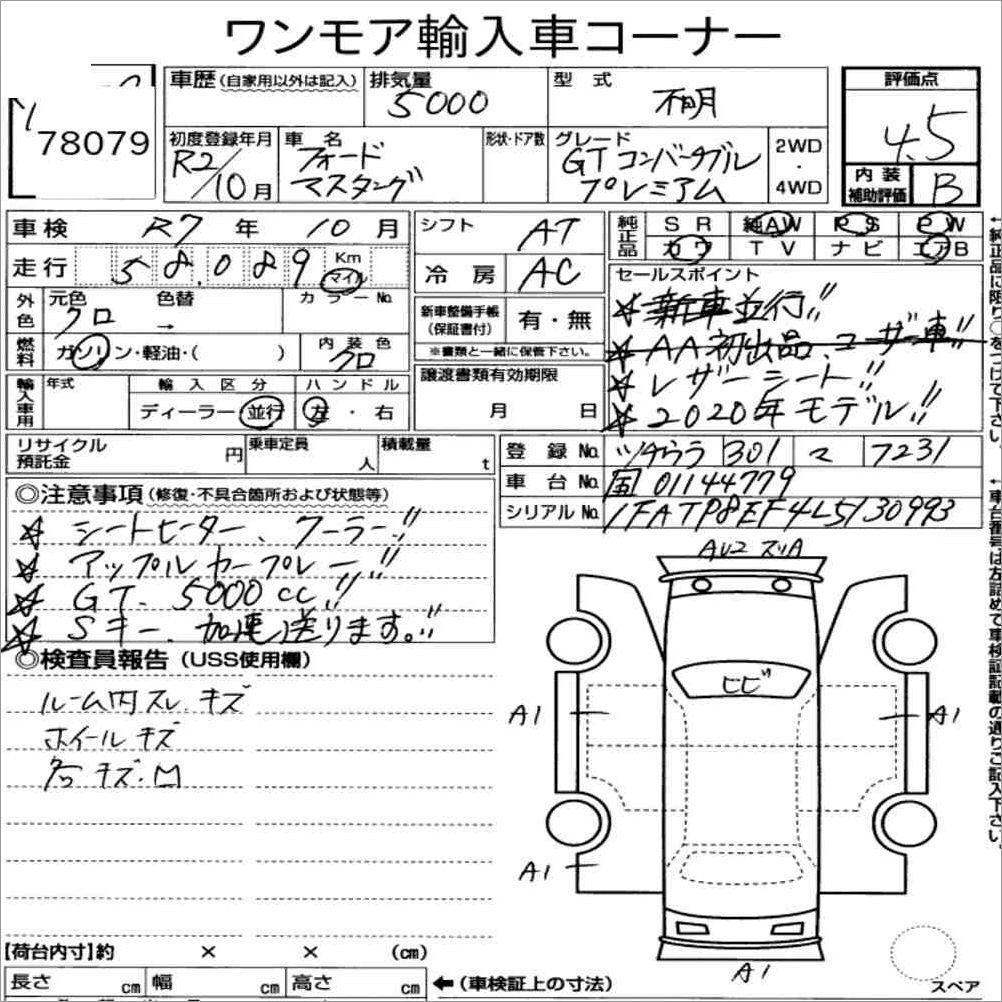 ワンモア輸入車コーナー
78079
車歴 (自家用以外は記入)
排気量
5000
型式
不明
評価点
4.5
初度登録年月
R2/10月
車名
フォード
マスタング
形状・ドア数
グレード
GTコンバーチブル
プレミアム
2WD
・
4WD
内装
補助評価
B
車検 R7年 10月
シフト AT
純正品
SR 純AW PS PW
カワ TV ナビ エアB
走行 58,089 Km マイル
冷房 AC
セールスポイント
☆新車並行!!
☆AA初出品、ユーザー車!!
☆レザーシート!!
☆2020年モデル!!
外色
元色 クロ
色替 →
カラーNo.
新車整備手帳
(保証書付)
有・無
※書類と一緒に保管下さい。
燃料
ガソリン・軽油・( )
内装色
クロ
譲渡書類有効期限
月 日
輸入車用
年式
輸入区分
ディーラー・並行
ハンドル
左・右
リサイクル
預託金
円
乗車定員
人
積載量
t
登録No. ツチウラ 301 マ 7231
車台No. 国 01144779
シリアルNo. 1FATP8EF4L5130993
◎注意事項 (修復・不具合箇所および状態等)
☆シートヒーター、クーラー!!
☆アップルカープレー!!
☆GT、5000cc!!
☆Sキー、加速送ります。!!
◎検査員報告 (USS使用欄)
ルーム内スレ、キズ
ホイールキズ
キズ・凹
AU2 スリA
ヒビ
A1
A1
A1
A1
スペア
【荷台内寸】約 × × (cm)
長さ cm 幅 cm 高さ cm
←(車検証上の寸法)
←純正品に限り○をつけて下さい。
←車台番号は左詰めで車検証記載の通りご記入下さい。